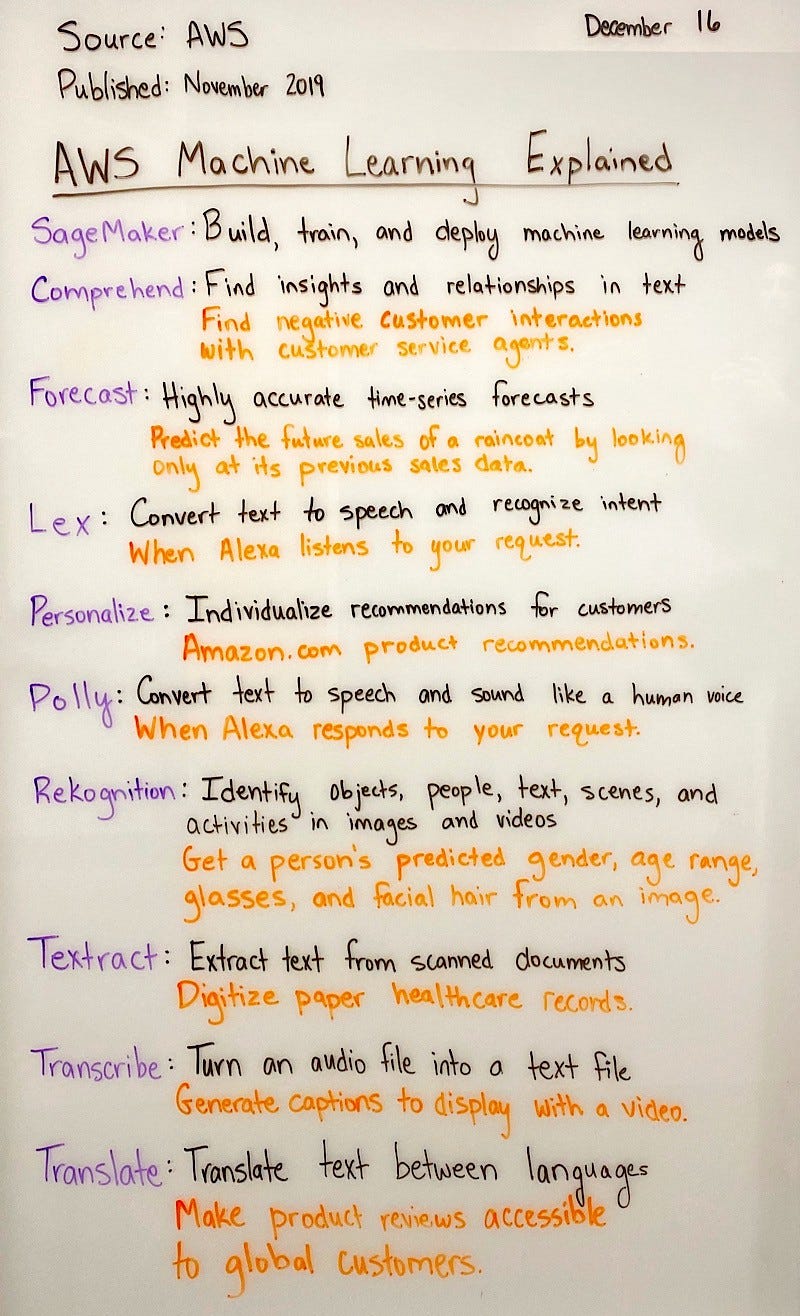 Source: AWS
December 16
Published: November 2019
AWS Machine Learning Explained
SageMaker: Build, train, and deploy machine learning models
Comprehend: Find insights and relationships in text
Find negative customer interactions
with customer service agents.
Forecast: Highly accurate time-series forecasts
Predict the future sales of a raincoat by looking
only at its previous sales data.
Lex: Convert text to speech and recognize intent
When Alexa listens to your request.
Personalize: Individualize recommendations for customers
Amazon.com product recommendations.
Polly: Convert text to speech and sound like a human voice
When Alexa responds to your request.
Rekognition: Identify objects, people, text, scenes, and
activities in images and videos
Get a person's predicted gender, age range,
glasses, and facial hair from an image.
Textract: Extract text from scanned documents
Digitize paper healthcare records.
Transcribe: Turn an audio file into a text file
Generate captions to display with a video.
Translate: Translate text between languages
Make product reviews accessible
to global customers.